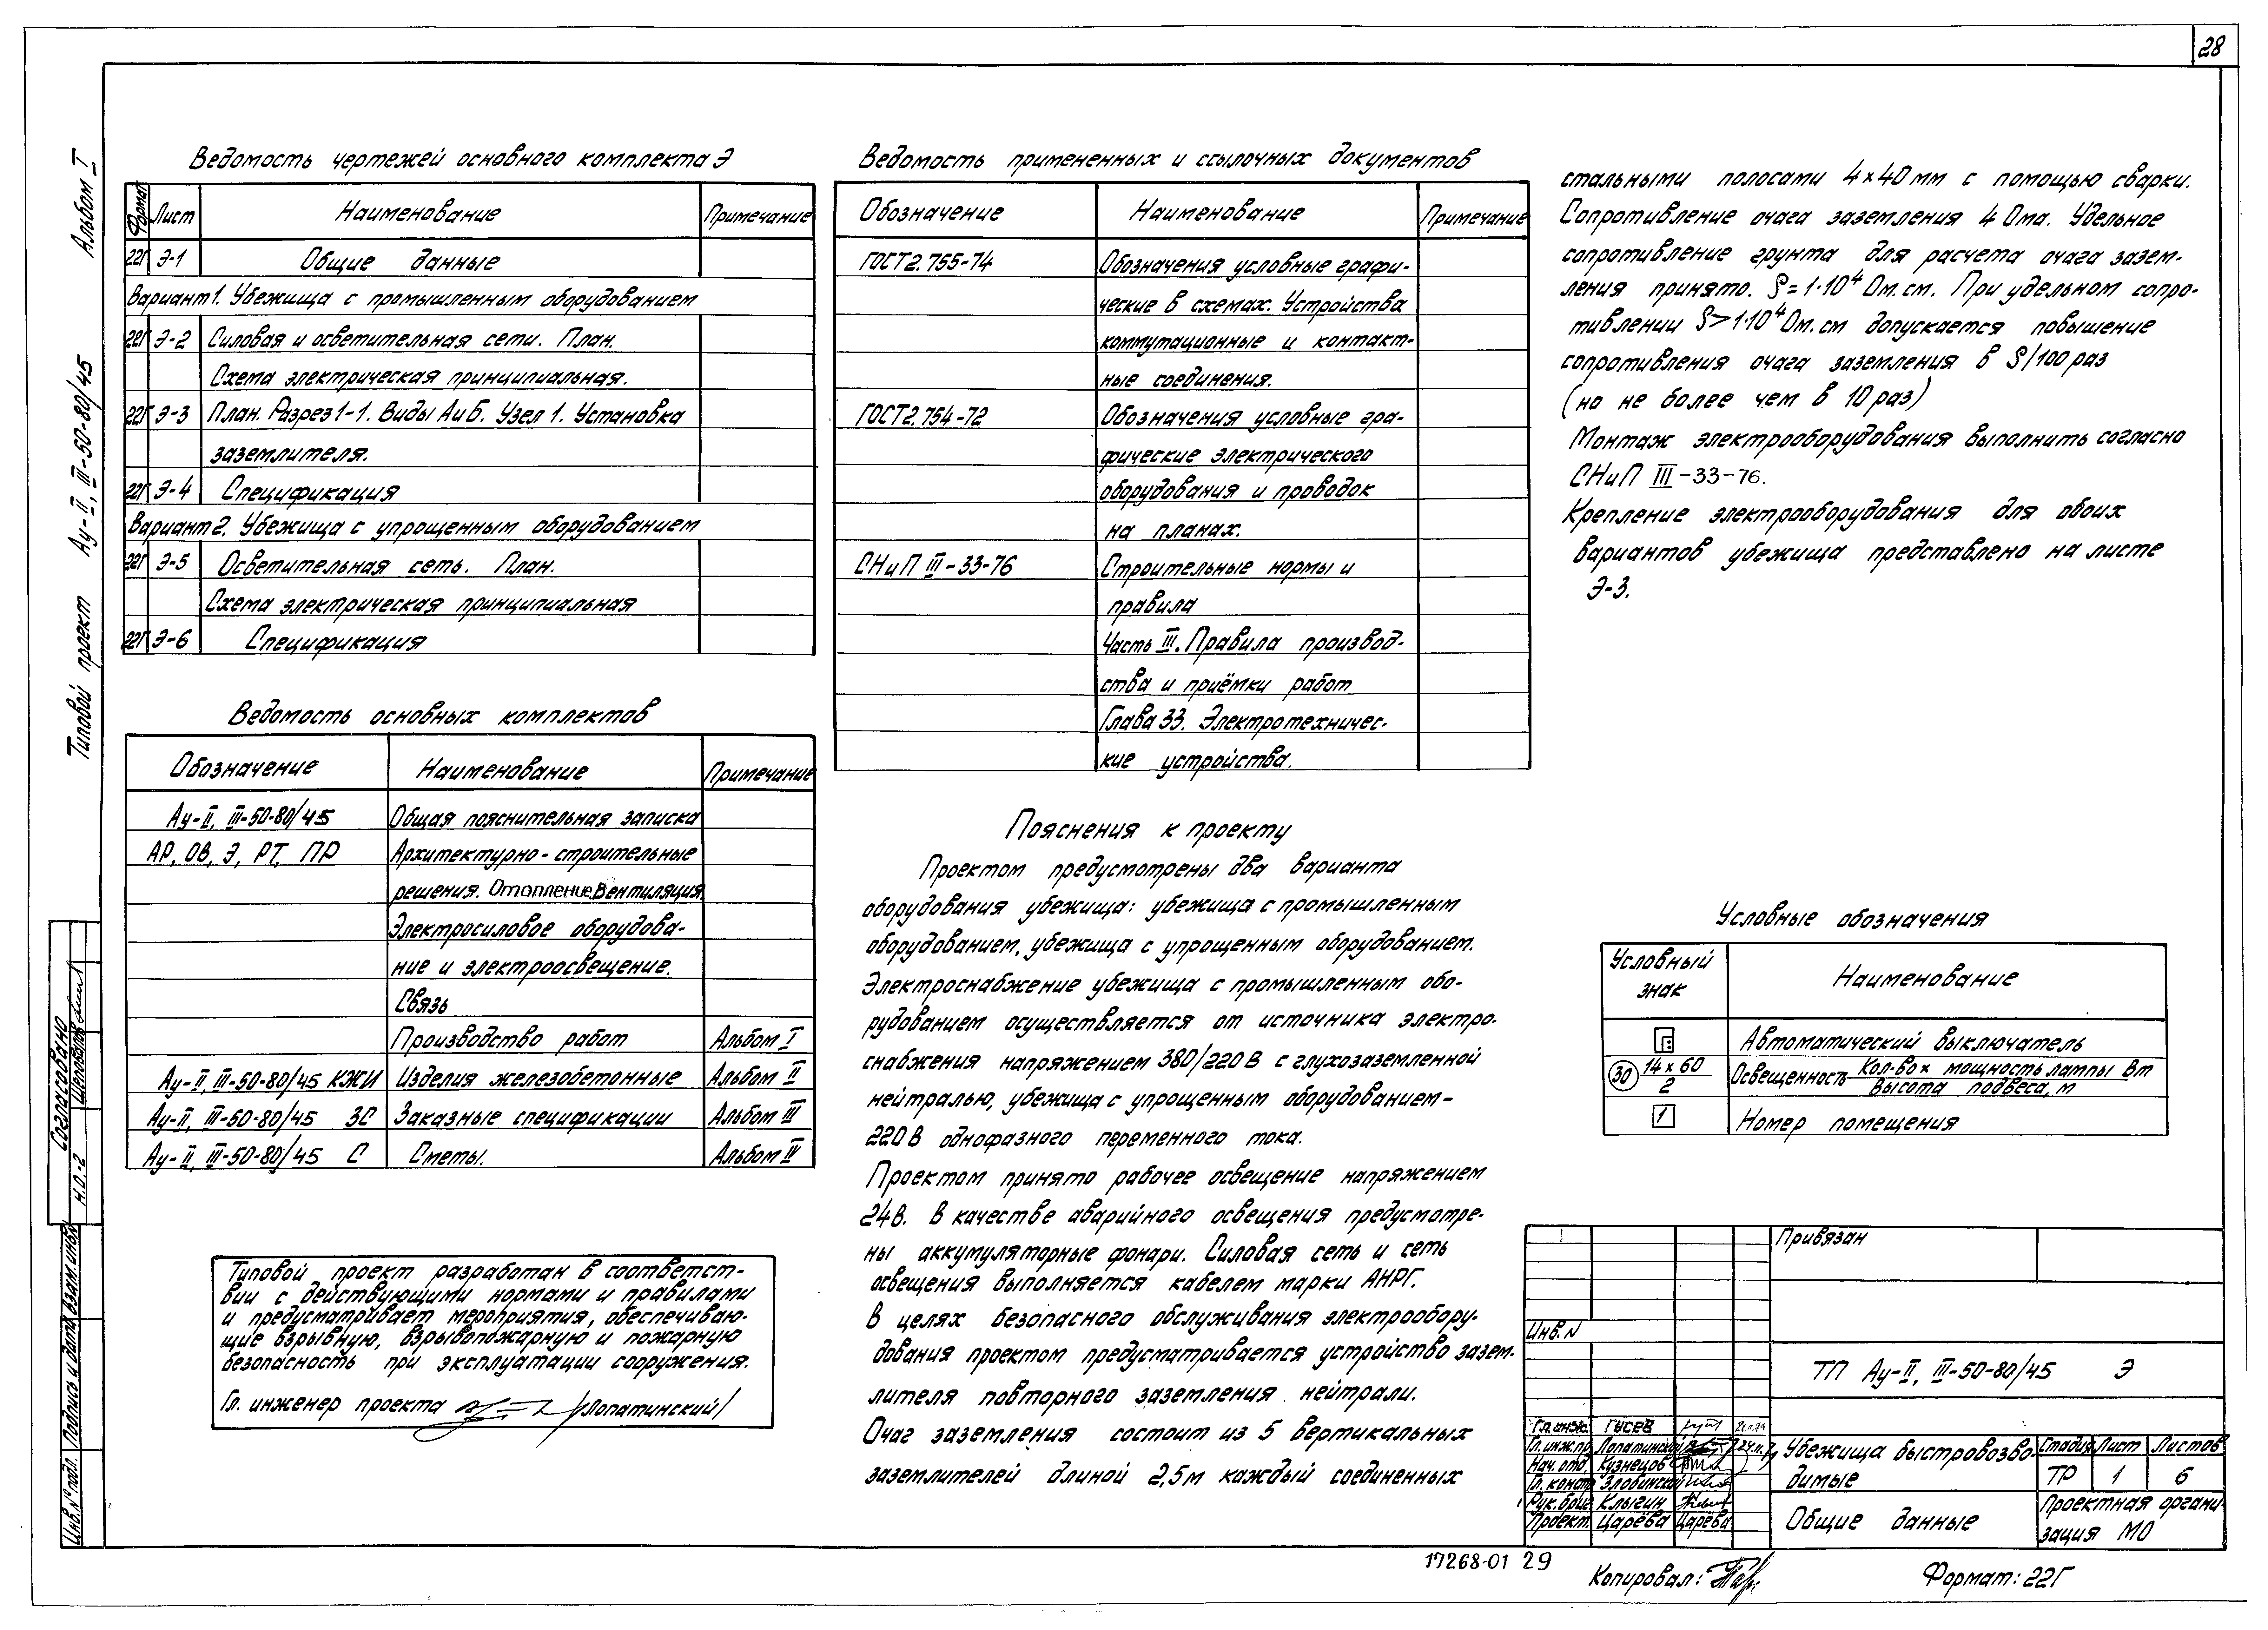 28
Альбом I
Типовой проект Ау-II, III-50-80/45
Ведомость чертежей основного комплекта Э
Формат Лист Наименование Примечание
22Г Э-1 Общие данные
Вариант 1. Убежища с промышленным оборудованием
22Г Э-2 Силовая и осветительная сети. План.
Схема электрическая принципиальная.
22Г Э-3 План. Разрез 1-1. Виды А и Б. Узел 1. Установка
заземлителя.
22Г Э-4 Спецификация
Вариант 2. Убежища с упрощенным оборудованием
22Г Э-5 Осветительная сеть. План.
Схема электрическая принципиальная
22Г Э-6 Спецификация
Ведомость основных комплектов
Обозначение Наименование Примечание
Ау-II, III-50-80/45 Общая пояснительная записка
АР, ОВ, Э, РТ, ПР Архитектурно-строительные
решения. Отопление. Вентиляция.
Электросиловое оборудова-
ние и электроосвещение.
Связь
Производство работ Альбом I
Ау-II, III-50-80/45 КЖИ Изделия железобетонные Альбом II
Ау-II, III-50-80/45 ЗС Заказные спецификации Альбом III
Ау-II, III-50-80/45 С Сметы. Альбом IV
Типовой проект разработан в соответст-
вии с действующими нормами и правилами
и предусматривает мероприятия, обеспечиваю-
щие взрывную, взрывопожарную и пожарную
безопасность при эксплуатации сооружения.
Гл. инженер проекта /Лопатинский/
Ведомость примененных и ссылочных документов
Обозначение Наименование Примечание
ГОСТ 2.755-74 Обозначения условные графи-
ческие в схемах. Устройства
коммутационные и контакт-
ные соединения.
ГОСТ 2.754-72 Обозначения условные гра-
фические электрического
оборудования и проводок
на планах.
СНиП III-33-76 Строительные нормы и
правила
Часть III. Правила производ-
ства и приёмки работ
Глава 33. Электротехничес-
кие устройства.
Пояснения к проекту
Проектом предусмотрены два варианта
оборудования убежища: убежища с промышленным
оборудованием, убежища с упрощенным оборудованием.
Электроснабжение убежища с промышленным обо-
рудованием осуществляется от источника электро-
снабжения напряжением 380/220 В с глухозаземленной
нейтралью, убежища с упрощенным оборудованием-
220 В однофазного переменного тока.
Проектом принято рабочее освещение напряжением
24 В. В качестве аварийного освещения предусмотре-
ны аккумуляторные фонари. Силовая сеть и сеть
освещения выполняется кабелем марки АНРГ.
В целях безопасного обслуживания электрообору-
дования проектом предусматривается устройство зазем-
лителя повторного заземления нейтрали.
Очаг заземления состоит из 5 вертикальных
заземлителей длиной 2,5м каждый соединенных
стальными полосами 4×40 мм с помощью сварки.
Сопротивление очага заземления 4 Ома. Удельное
сопротивление грунта для расчета очага зазем-
ления принято. ρ=1·10⁴ Ом.см. При удельном сопро-
тивлении ρ>1·10⁴ Ом.см допускается повышение
сопротивления очага заземления в ρ/100 раз
(но не более чем в 10 раз)
Монтаж электрооборудования выполнить согласно
СНиП III-33-76.
Крепление электрооборудования для обоих
вариантов убежища представлено на листе
Э-3.
Условные обозначения
Условный знак Наименование
Автоматический выключатель
30 14×60/2 Освещенность Кол-во × мощность лампы Вт/Высота подвеса, м
1 Номер помещения
Привязан
Инв. N
ТП Ау-II, III-50-80/45 Э
Гл. инж. Гусев
Гл. инж. пр. Лопатинский
Нач. отд. Кузнецов
Гл. констр. Злобинский
Рук. бриг. Клыгин
Проект. Царёва Царёва
Убежища быстровозво-
димые
Стадия Лист Листов
ТР 1 6
Общие данные
Проектная органи-
зация МО
Согласовано
Н.О.-2
Инв. № подл. Подпись и дата Взам. инв. №
17268-01 29
Копировал:
Формат: 22Г